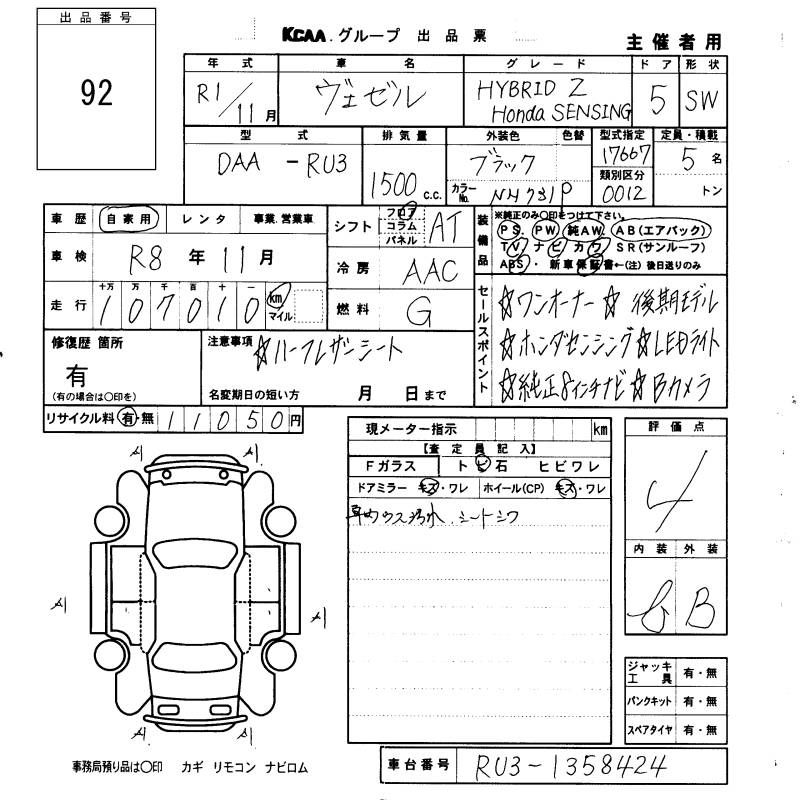 出品番号
92
KCAA.グループ 出品票
主催者用
年式 車名 グレード ドア 形状
R1/11月 ヴェゼル HYBRID Z Honda SENSING 5 SW
型式 排気量 外装色 色替 型式指定 定員・積載
DAA-RU3 1500c.c. ブラック 17667 5名
カラーNo. NH731P 類別区分 0012 トン
車歴 自家用 レンタ 事業.営業車
シフト フロア コラム パネル AT
装備品 ※純正のみ〇印をつけて下さい。
PS. PW. 純AW. AB(エアバック)
TV ナビ カワ SR(サンルーフ)
ABS・新車保証書←(注)後日送りのみ
車検 R8年11月
冷房 AAC
走行 十万 万 千 百 十 一
107010 km マイル
燃料 G
セールスポイント
☆ワンオーナー☆後期モデル
☆ホンダセンシング☆LEDライト
☆純正8インチナビ☆Bカメラ
修復歴 箇所
有
(有の場合は〇印を)
注意事項 ☆ハーフレザーシート
名変期日の短い方 月 日まで
リサイクル料 有・無 11050円
現メーター指示 km
【査定員記入】
Fガラス トビ石 ヒビワレ
ドアミラー キズ・ワレ ホイール(CP) キズ・ワレ
車内ウス汚れ.シートシワ
評価点
4
内装 外装
B
A1
A1
A1
A1
ジャッキ工具 有・無
パンクキット 有・無
スペアタイヤ 有・無
事務局預り品は〇印 カギ リモコン ナビロム
車台番号 RU3-1358424